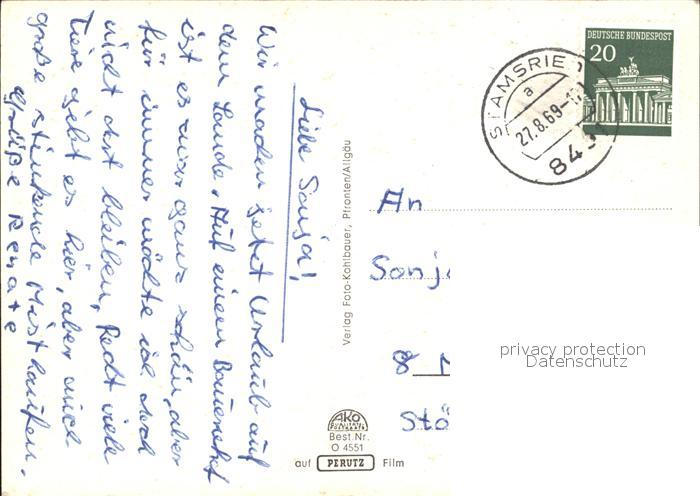 Liebe Sonja!
Wir machen jetzt Urlaub auf
dem Lande. Auf einem Bauernhof
ist es zwar ganz schön, aber
für immer möchte ich doch
nicht dort bleiben. Recht viele
Tiere gibt es hier, aber auch
große stinkende Misthaufen.
Grüße Renate
Verlag Foto-Kohlbauer, Pfronten/Allgäu
DEUTSCHE BUNDESPOST
20
STAMSRIED
a
27.8.69
8491
An
Sonj
8 M
Stö
privacy protection
Datenschutz
AKO
QUALITÄTS
POSTKARTE
Best. Nr.
O 4551
auf PERUTZ Film